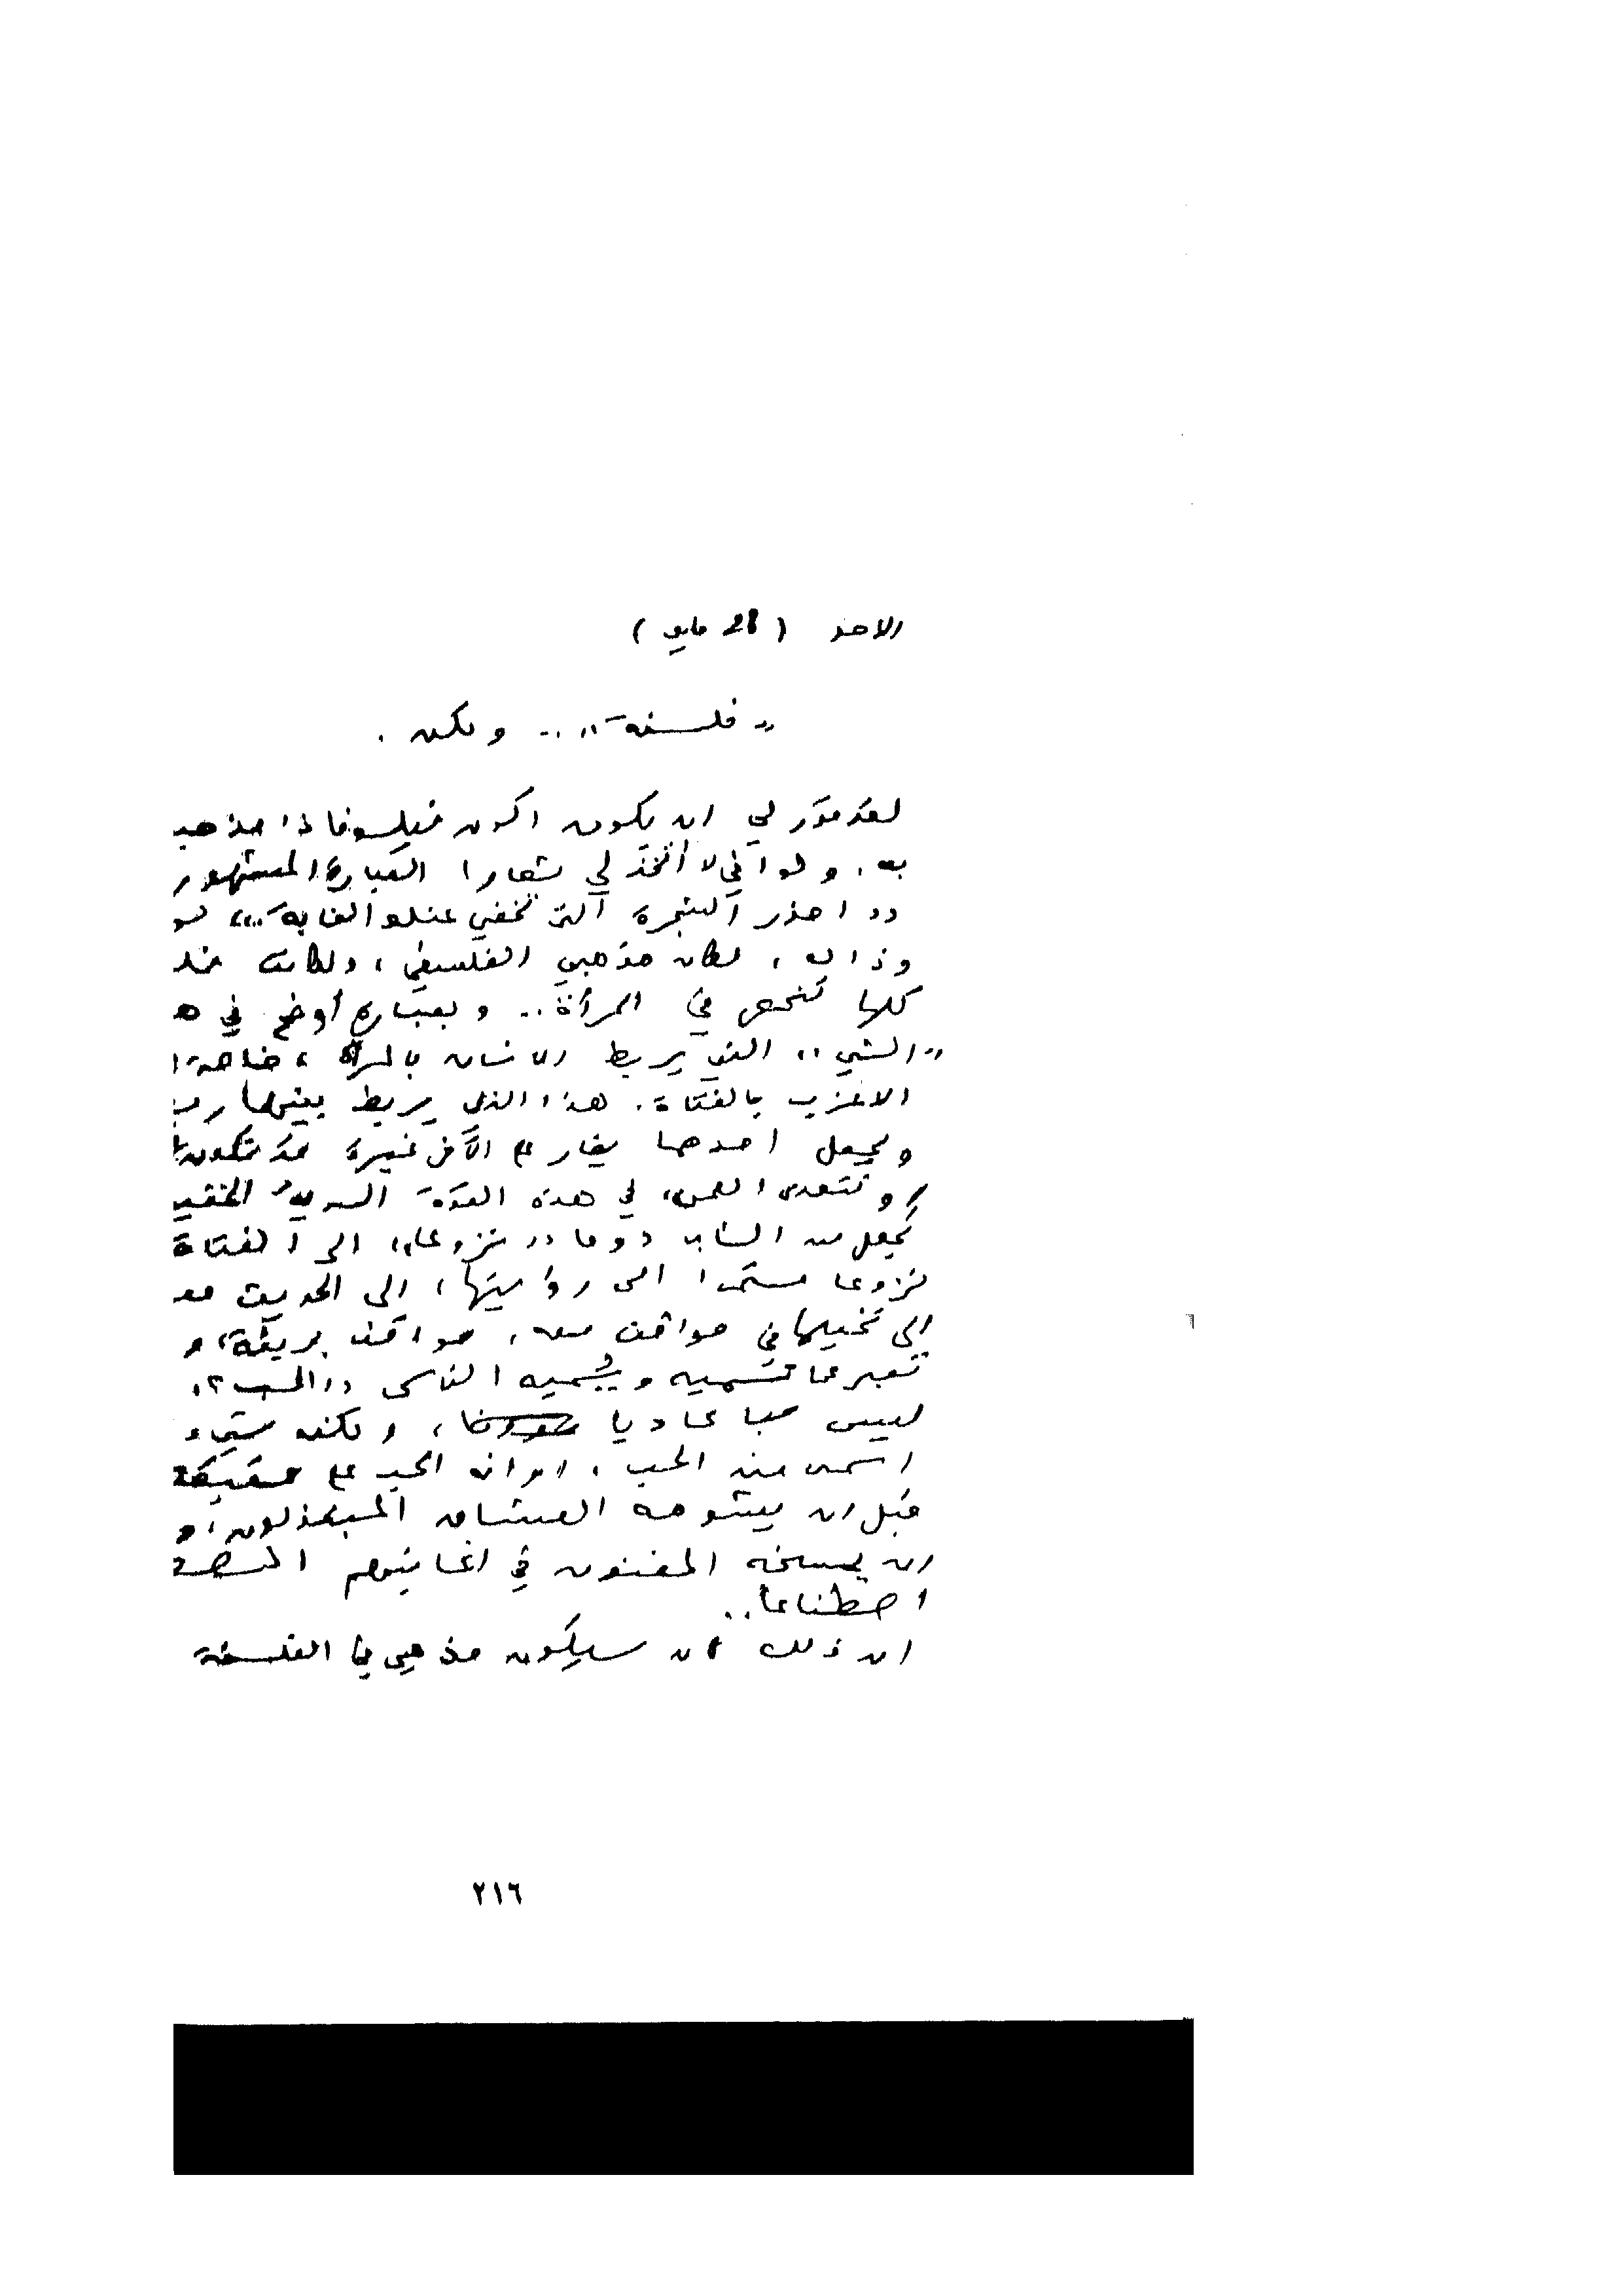 الاحد ( 28 مايو )
« فلسفة » .. ولكن .
لقد قدر لي ان يكون اكون فيلسوفا ذا مذهب
به . ولو اني لا أتخذ لي شعارا العبارة المشهور
« احذر الشجرة التي تخفي عنك الغابة .. » لو
وذاك ، لكان مذهبي الفلسفي ، ولكانت
كلها تنحصر في المرأة .. وبعبارة أوضح في ه
« الشيء » الذي يربط الانسان بالمرأة ، خاصة ا
الاعزب بالفتاة . هذا الذي يربط بينهما رب
ويجعل احدهما يغار على الآخر غيرة قد تكون
في هذه القوة السرية الخفية
تجعل من الشاب دوما « نزوعا » الى الفتاة
نزوعا مستمرا الى رؤيتها ، الى الحديث مع
الى تخيلها في مواقف معه ، مواقف بريئة ، و
تعبر عما تسميه ويسميه الناس « الحب » .
ليس حبا عاديا ، ولكنه شيء
اسمى من الحب ، او انه الحب على حقيقة
قبل ان يشوهه العشاق المبتذلون ، و
ان يمسخه المغنون في اغانيهم
اصطناعا ..
ان ذلك ان سيكون مذهبي في الفلسفة
٢١٦